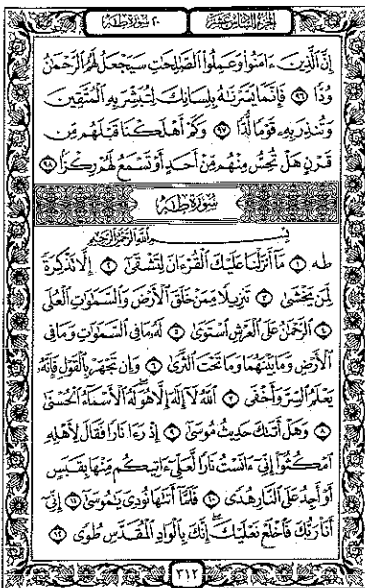 الجزء السادس عشر ٢٠ سورة طه
إِنَّ الَّذِينَ ءَامَنُوا وَعَمِلُوا الصَّٰلِحَٰتِ سَيَجْعَلُ لَهُمُ الرَّحْمَٰنُ
وُدًّا ٩٦ فَإِنَّمَا يَسَّرْنَٰهُ بِلِسَانِكَ لِتُبَشِّرَ بِهِ الْمُتَّقِينَ
وَتُنذِرَ بِهِ قَوْمًا لُّدًّا ٩٧ وَكَمْ أَهْلَكْنَا قَبْلَهُم مِّن
قَرْنٍ هَلْ تُحِسُّ مِنْهُم مِّنْ أَحَدٍ أَوْ تَسْمَعُ لَهُمْ رِكْزًا ٩٨
سُورَةُ طه
بِسْمِ اللَّهِ الرَّحْمَٰنِ الرَّحِيمِ
طه ١ مَا أَنزَلْنَا عَلَيْكَ الْقُرْءَانَ لِتَشْقَىٰ ٢ إِلَّا تَذْكِرَةً
لِّمَن يَخْشَىٰ ٣ تَنزِيلًا مِّمَّنْ خَلَقَ الْأَرْضَ وَالسَّمَٰوَٰتِ الْعُلَى
٤ الرَّحْمَٰنُ عَلَى الْعَرْشِ اسْتَوَىٰ ٥ لَهُ مَا فِي السَّمَٰوَٰتِ وَمَا فِي
الْأَرْضِ وَمَا بَيْنَهُمَا وَمَا تَحْتَ الثَّرَىٰ ٦ وَإِن تَجْهَرْ بِالْقَوْلِ فَإِنَّهُ
يَعْلَمُ السِّرَّ وَأَخْفَى ٧ اللَّهُ لَا إِلَٰهَ إِلَّا هُوَ لَهُ الْأَسْمَاءُ الْحُسْنَىٰ
٨ وَهَلْ أَتَىٰكَ حَدِيثُ مُوسَىٰ ٩ إِذْ رَءَا نَارًا فَقَالَ لِأَهْلِهِ
امْكُثُوا إِنِّي ءَانَسْتُ نَارًا لَّعَلِّي ءَاتِيكُم مِّنْهَا بِقَبَسٍ
أَوْ أَجِدُ عَلَى النَّارِ هُدًى ١٠ فَلَمَّا أَتَىٰهَا نُودِيَ يَٰمُوسَىٰ ١١ إِنِّي
أَنَا رَبُّكَ فَاخْلَعْ نَعْلَيْكَ إِنَّكَ بِالْوَادِ الْمُقَدَّسِ طُوًى ١٢
٣١٢